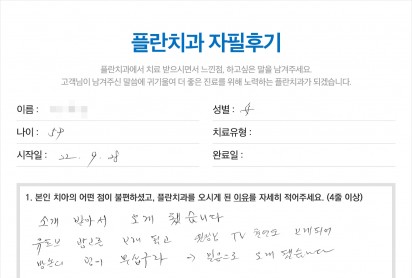 플란치과 자필후기
플란치과에서 치료 받으시면서 느낀점, 하고싶은 말을 남겨주세요.
고객님이 남겨주신 말씀에 귀기울여 더 좋은 진료를 위해 노력하는 플란치과가 되겠습니다.
이름 :
성별 :
나이 : 59
치료유형 :
시작일 : 22. 9. 28
완료일 :
1. 본인 치아의 어떤 점이 불편하셨고, 플란치과를 오시게 된 이유를 자세히 적어주세요. (4줄 이상)
소개 받아서 오게 됐습니다
유튜브 방송도 보게 되고 TV 보게되어
방송의 힘이 무섭구나 → 믿음으로 오게 됐습니다